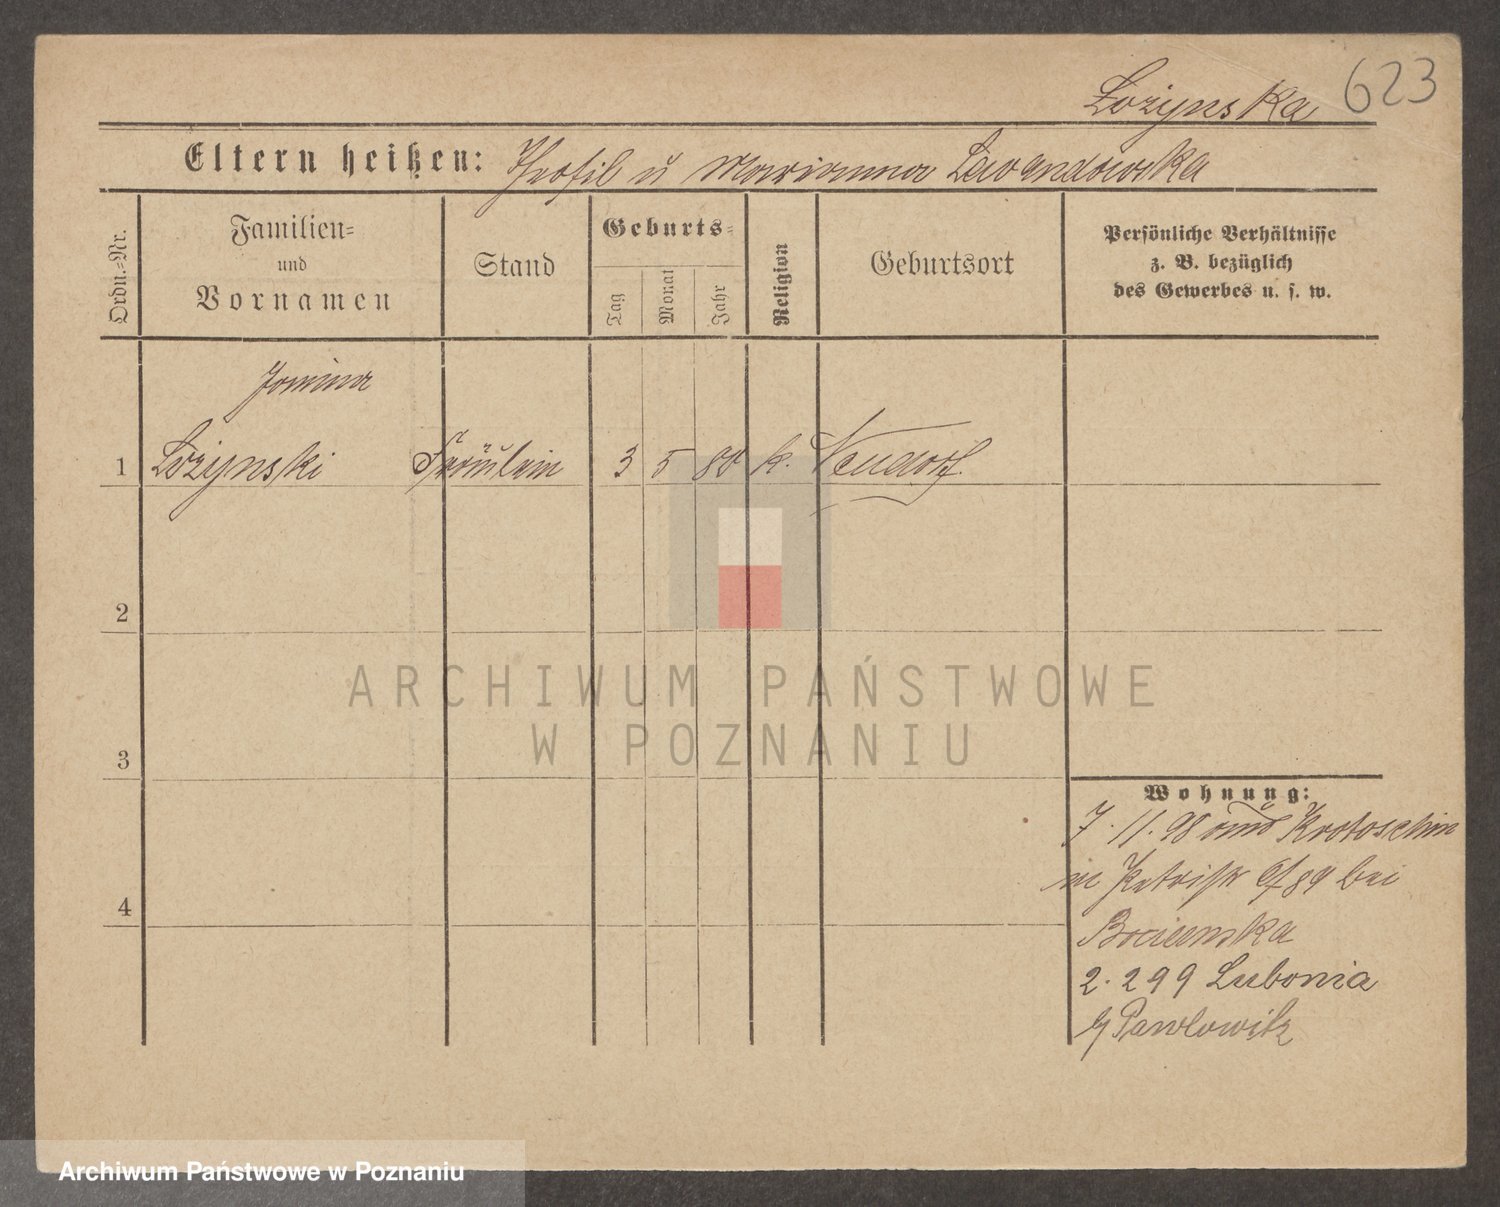 Łożynska 623
Eltern heißen: Throfil u Marianna Lewandowska
Ordn.-Nr.
Familien-
und
Vornamen
Stand
Geburts-
Tag
Monat
Jahr
Religion
Geburtsort
Persönliche Verhältnisse
z. B. bezüglich
des Gewerbes u. s. w.
1 Łożynski Fräulein 3 5 80 k. Neudorf
2
3
4
Wohnung:
7.11.98 Krotoschin
bei
2.2 99 Lubonia
Pawlowitz
ARCHIWUM PAŃSTWOWE
W POZNANIU
Archiwum Państwowe w Poznaniu